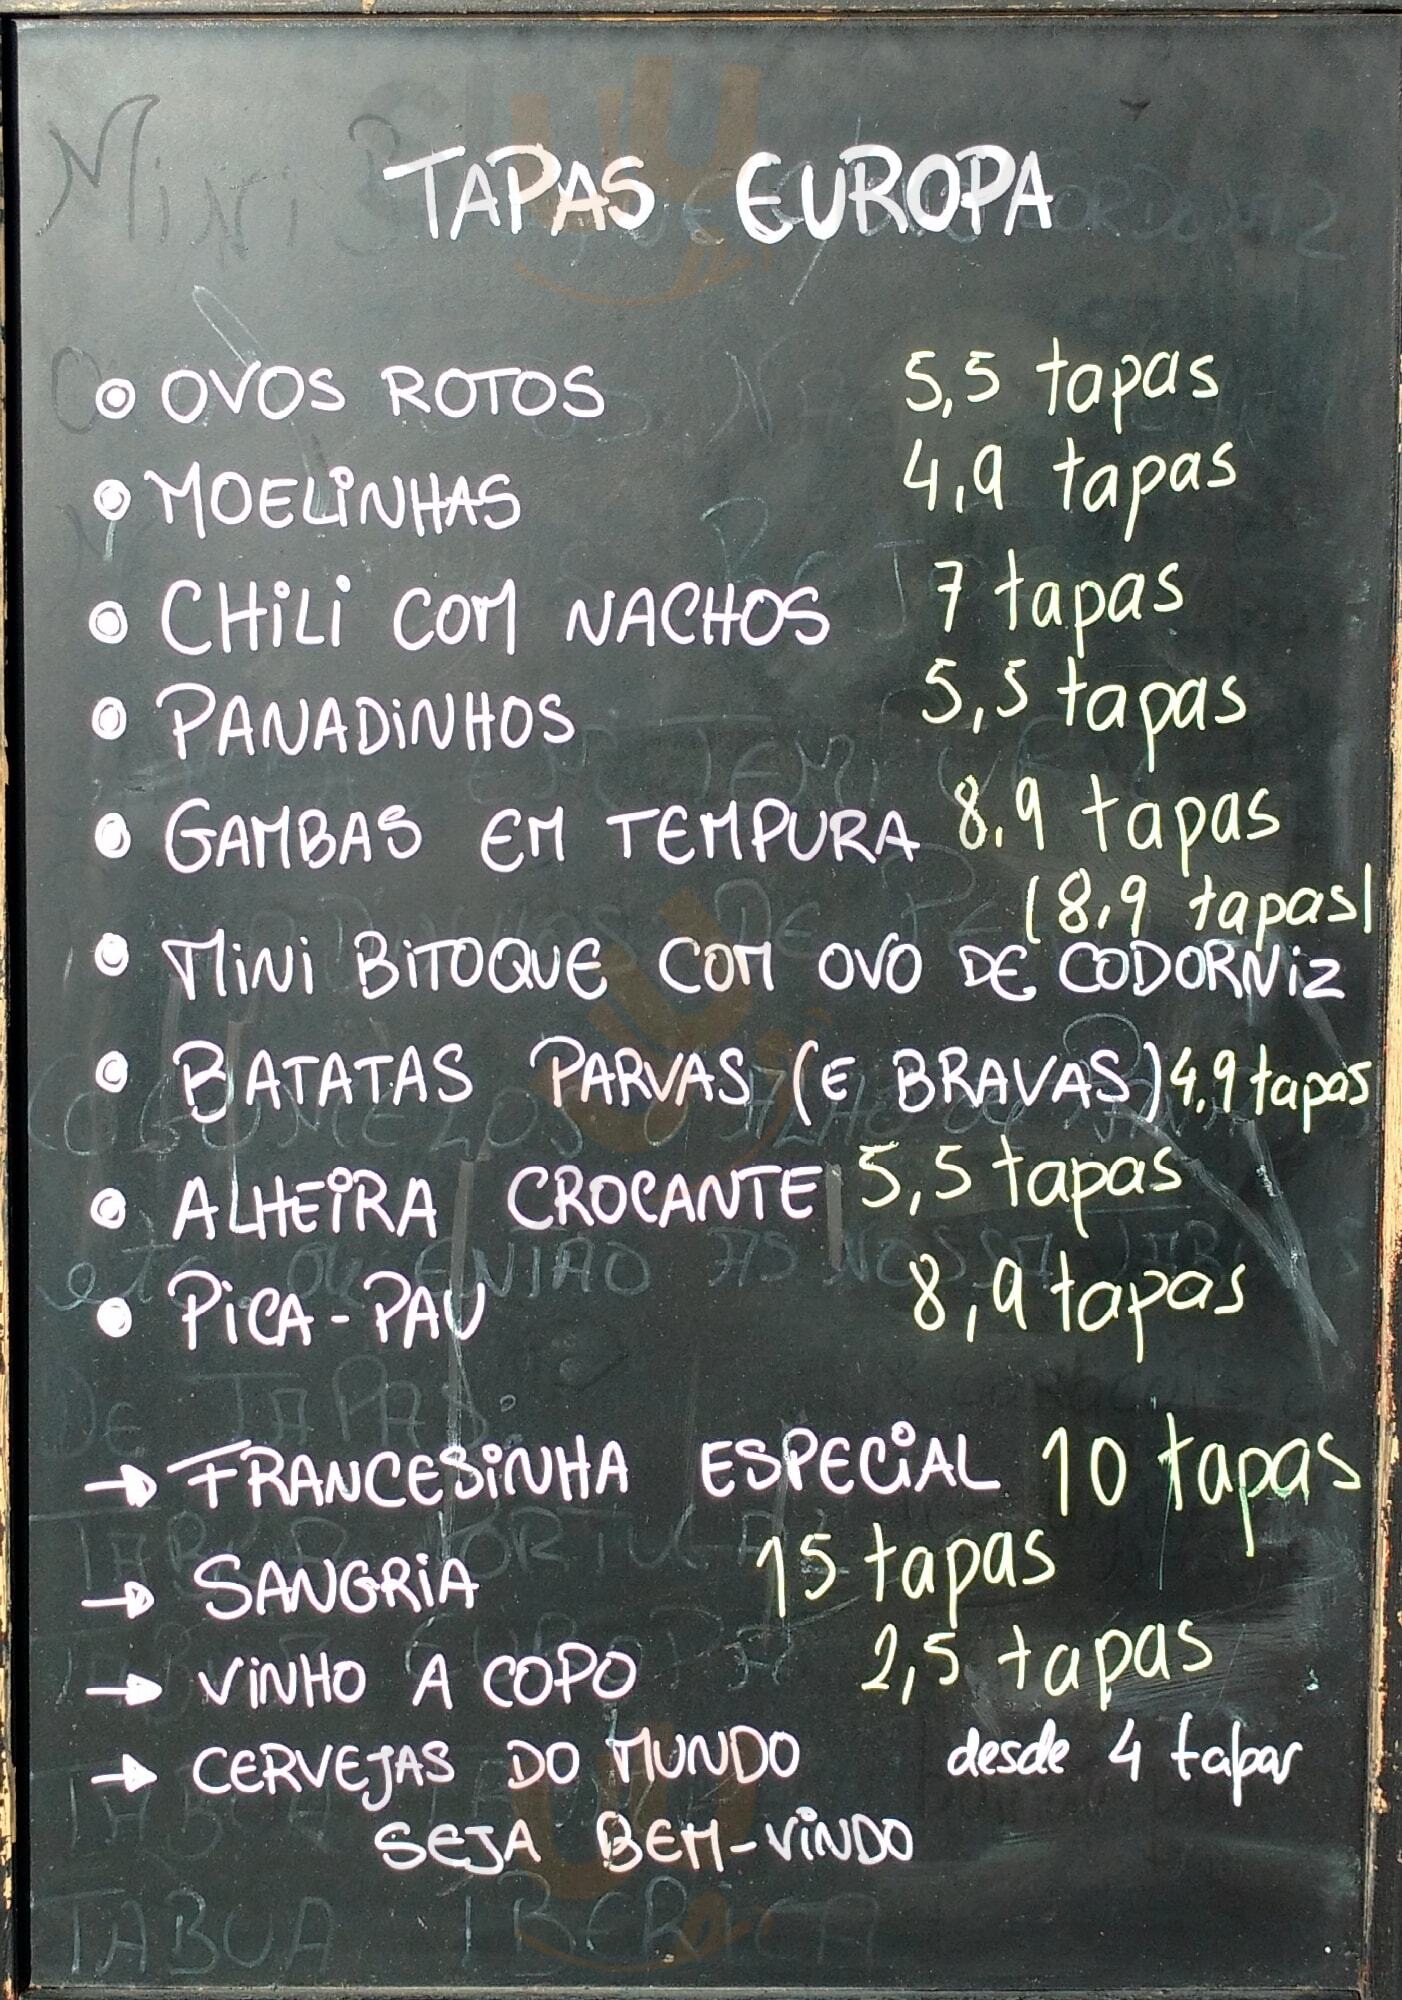 TAPAS EUROPA
OVOS ROTOS 5,5 tapas
MOELINHAS 4,9 tapas
CHILI COM NACHOS 7 tapas
PANADINHOS 5,5 tapas
GAMBAS EM TEMPURA 8,9 tapas
(8,9 tapas)
MINI BITOQUE COM OVO DE CODORNIZ
BATATAS PARVAS (E BRAVAS) 4,9 tapas
ALHEIRA CROCANTE 5,5 tapas
PICA-PAU 8,9 tapas
→ FRANCESINHA ESPECIAL 10 tapas
→ SANGRIA 15 tapas
→ VINHO A COPO 2,5 tapas
→ CERVEJAS DO MUNDO desde 4 tapas
SEJA BEM-VINDO
TÁBUA IBÉRICA